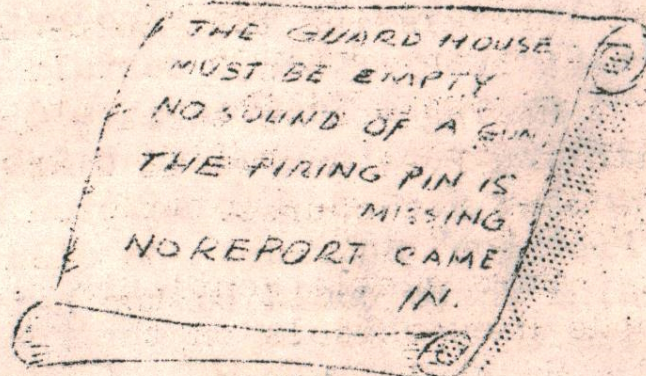 THE GUARD HOUSE
MUST BE EMPTY
NO SOUND OF A GUN.
THE FIRING PIN IS
MISSING
NO REPORT CAME
IN.